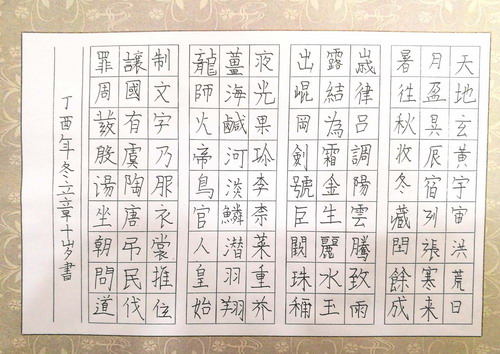 天地玄黃宇宙洪荒日
月盈昃辰宿列張寒来
暑往秋收冬藏閏餘成
歳律呂調陽雲騰致雨
露結為霜金生麗水玉
出崐岡劍號巨闕珠稱
夜光果珍李奈菜重芥
薑海鹹河淡鱗潜羽翔
龍師火帝鳥官人皇始
制文字乃服衣裳推位
讓國有虞陶唐吊民伐
罪周發殷湯坐朝問道
丁酉年冬立章十岁書